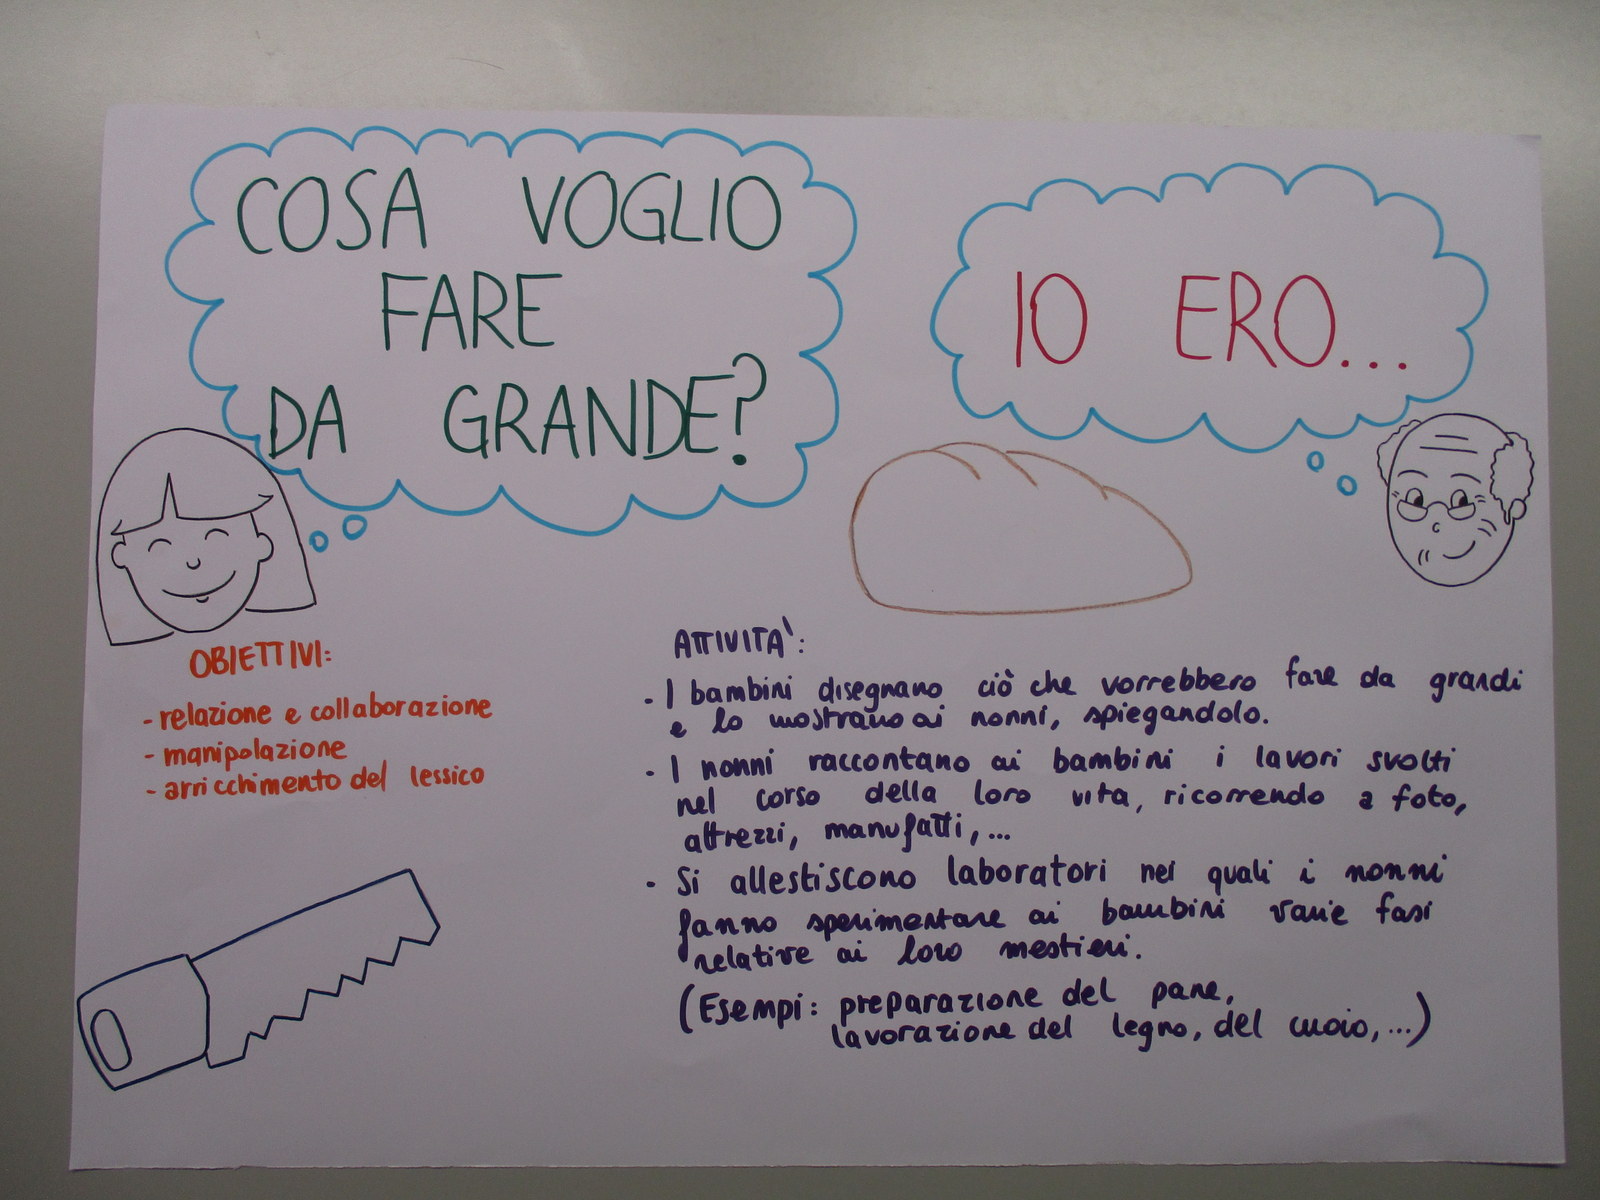 COSA VOGLIO
FARE
DA GRANDE?
IO ERO...
OBIETTIVI:
- relazione e collaborazione
- manipolazione
- arricchimento del lessico
ATTIVITA':
. I bambini disegnano ciò che vorrebbero fare da grandi
e lo mostrano ai nonni, spiegandolo.
. I nonni raccontano ai bambini i lavori svolti
nel corso della loro vita, ricorrendo a foto,
attrezzi, manufatti,...
. Si allestiscono laboratori nei quali i nonni
fanno sperimentare ai bambini varie fasi
relative ai loro mestieri.
(Esempi: preparazione del pane,
lavorazione del legno, del cuoio,...)